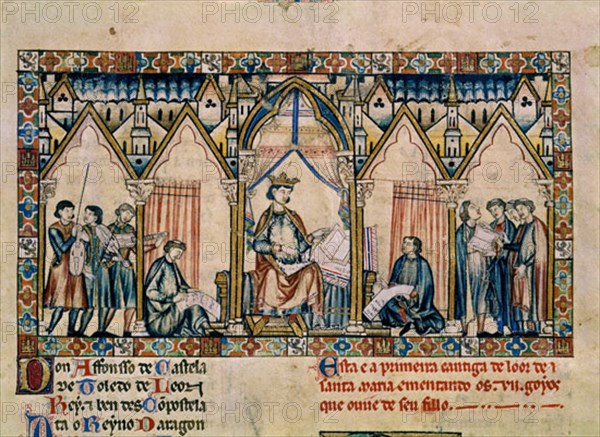 Don Affonsso de Castela
de Toledo de Leon
Rey. & ben des Cõpostela
ta o Reyno Daragon
Esta e a primeira cantiga de loor de
santa maria ementando os .vii. goyos
que ouve de seu fillo.
PHOTO12